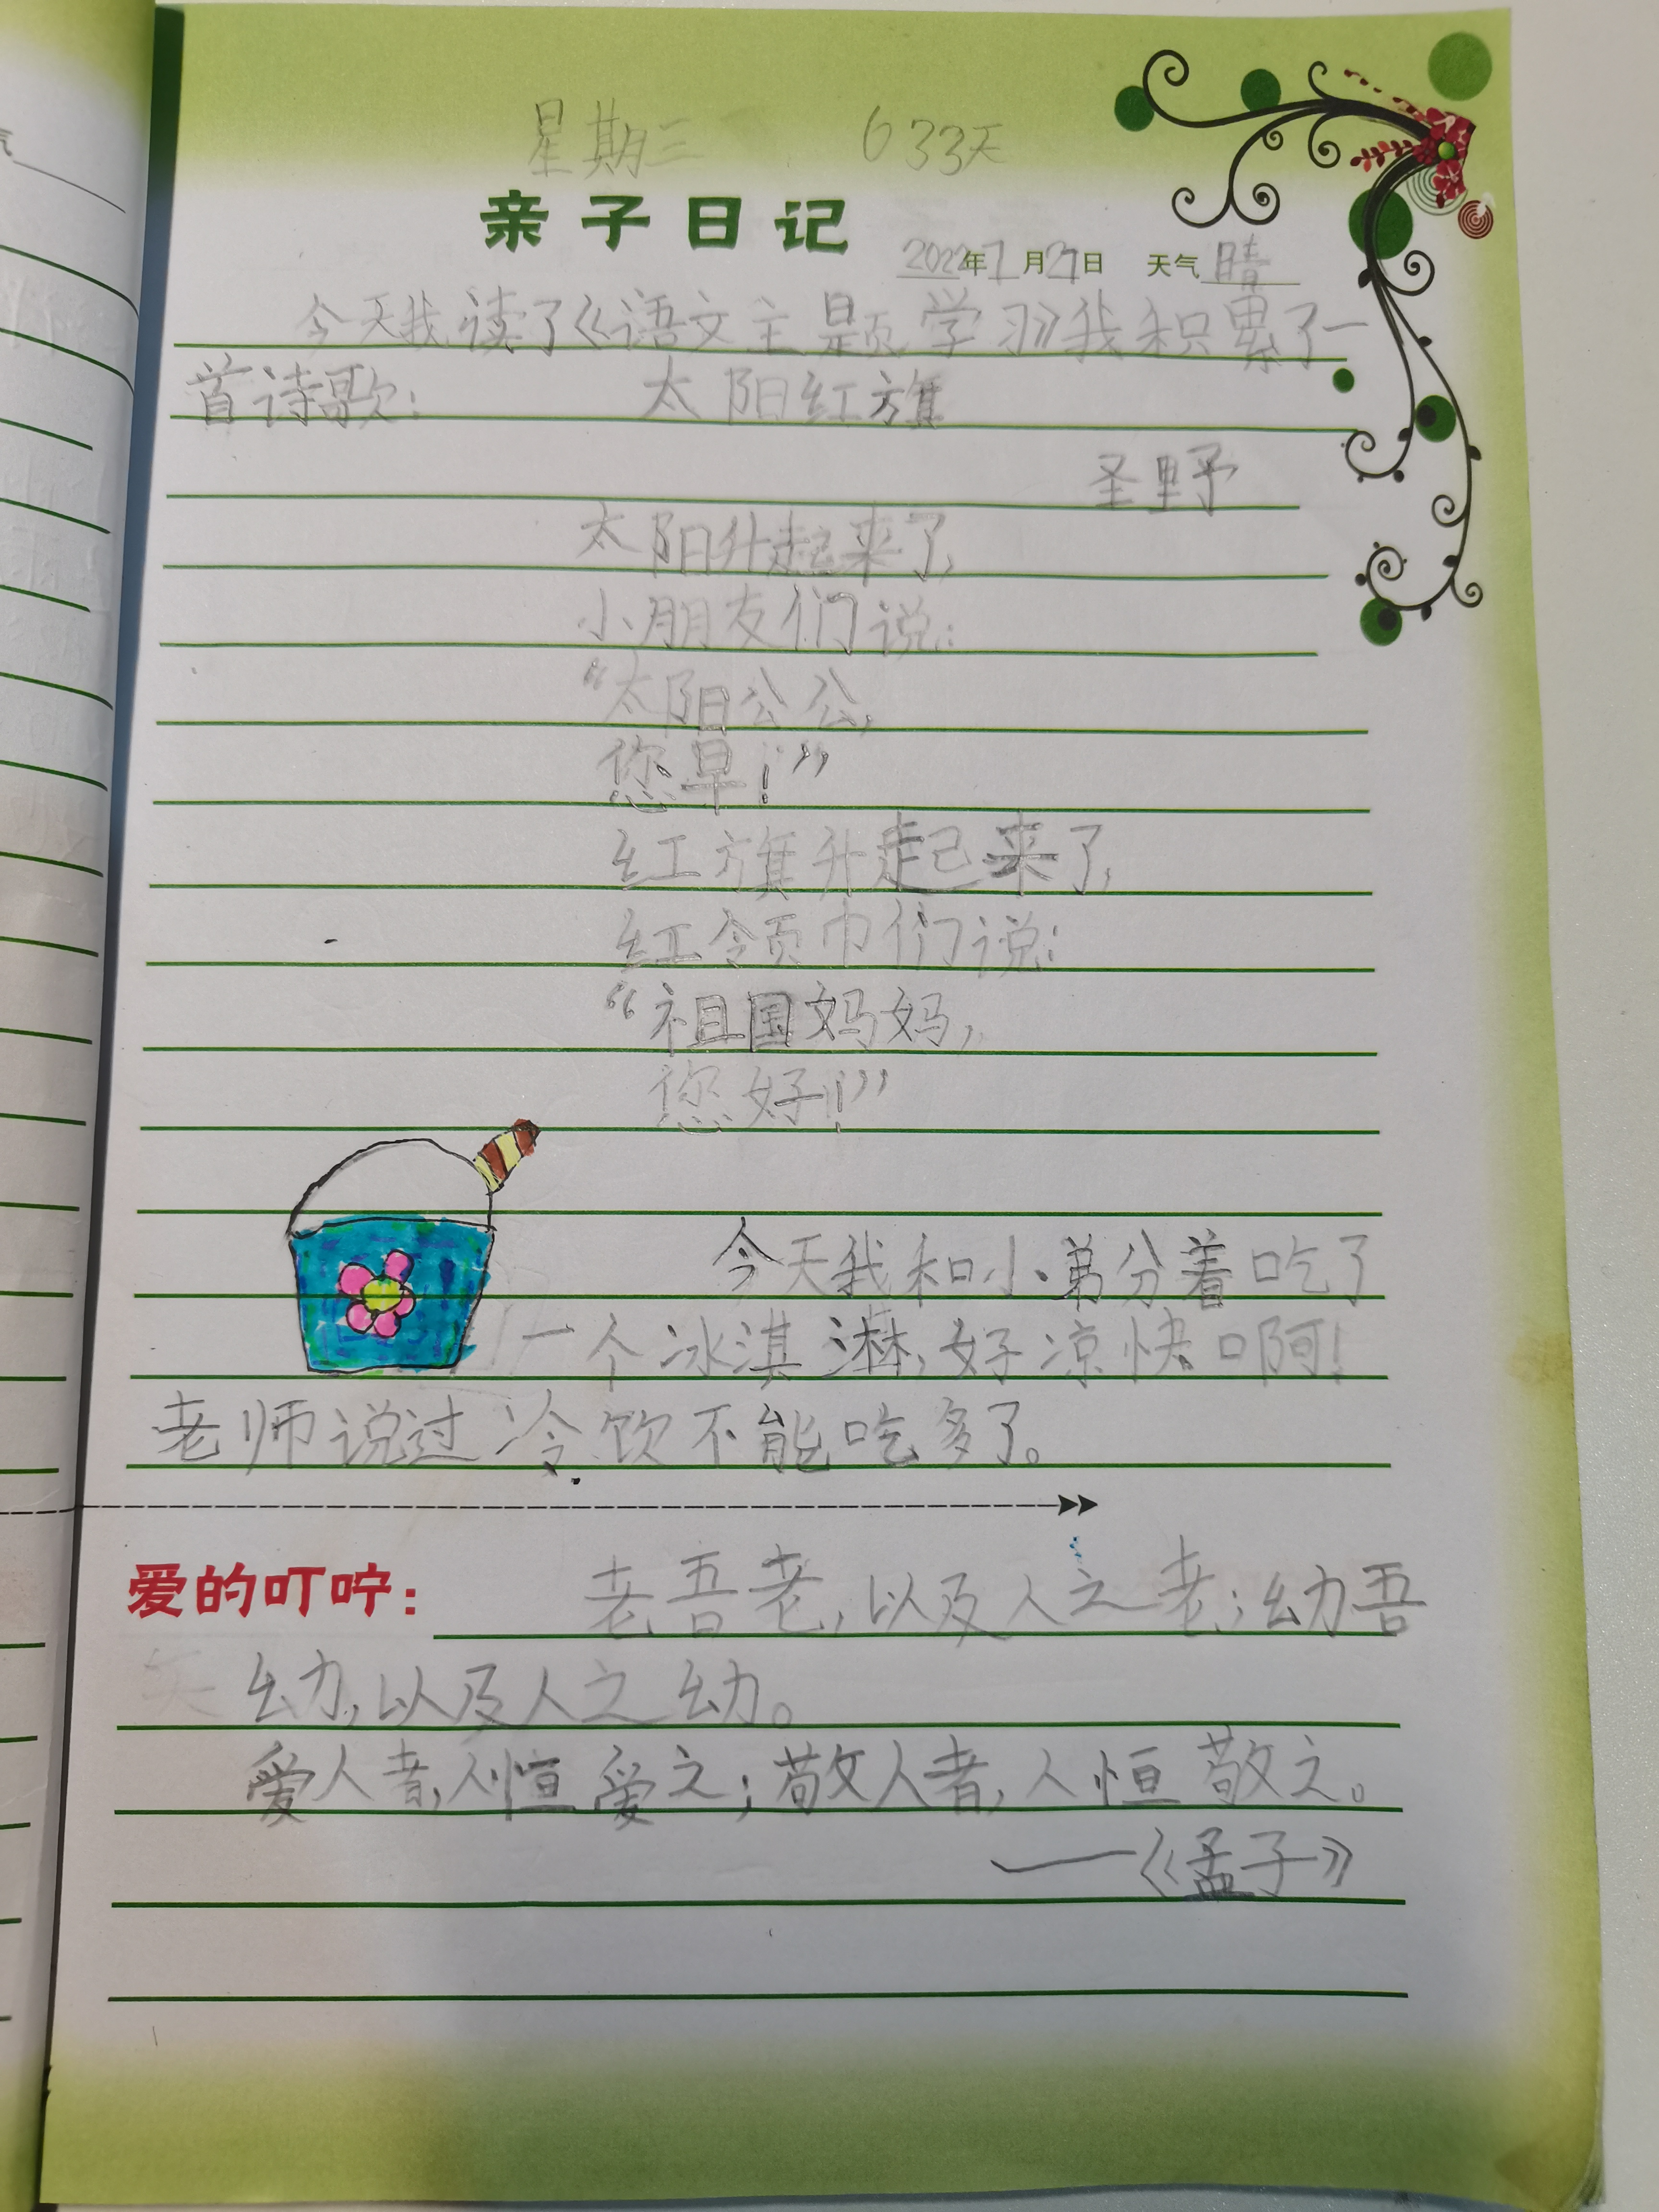 星期三 633天
亲子日记
2022年7月27日 天气 晴
今天我读了《语文主题学习》我积累了一
首诗歌: 太阳红旗
圣野
太阳升起来了,
小朋友们说:
“太阳公公,
您早!”
红旗升起来了,
红领巾们说:
“祖国妈妈,
您好!”
今天我和小弟分着吃了
一个冰淇淋,好凉快啊!
老师说过冷饮不能吃多了。
爱的叮咛: 老吾老,以及人之老;幼吾
幼,以及人之幼。
爱人者,人恒爱之;敬人者,人恒敬之。
——《孟子》